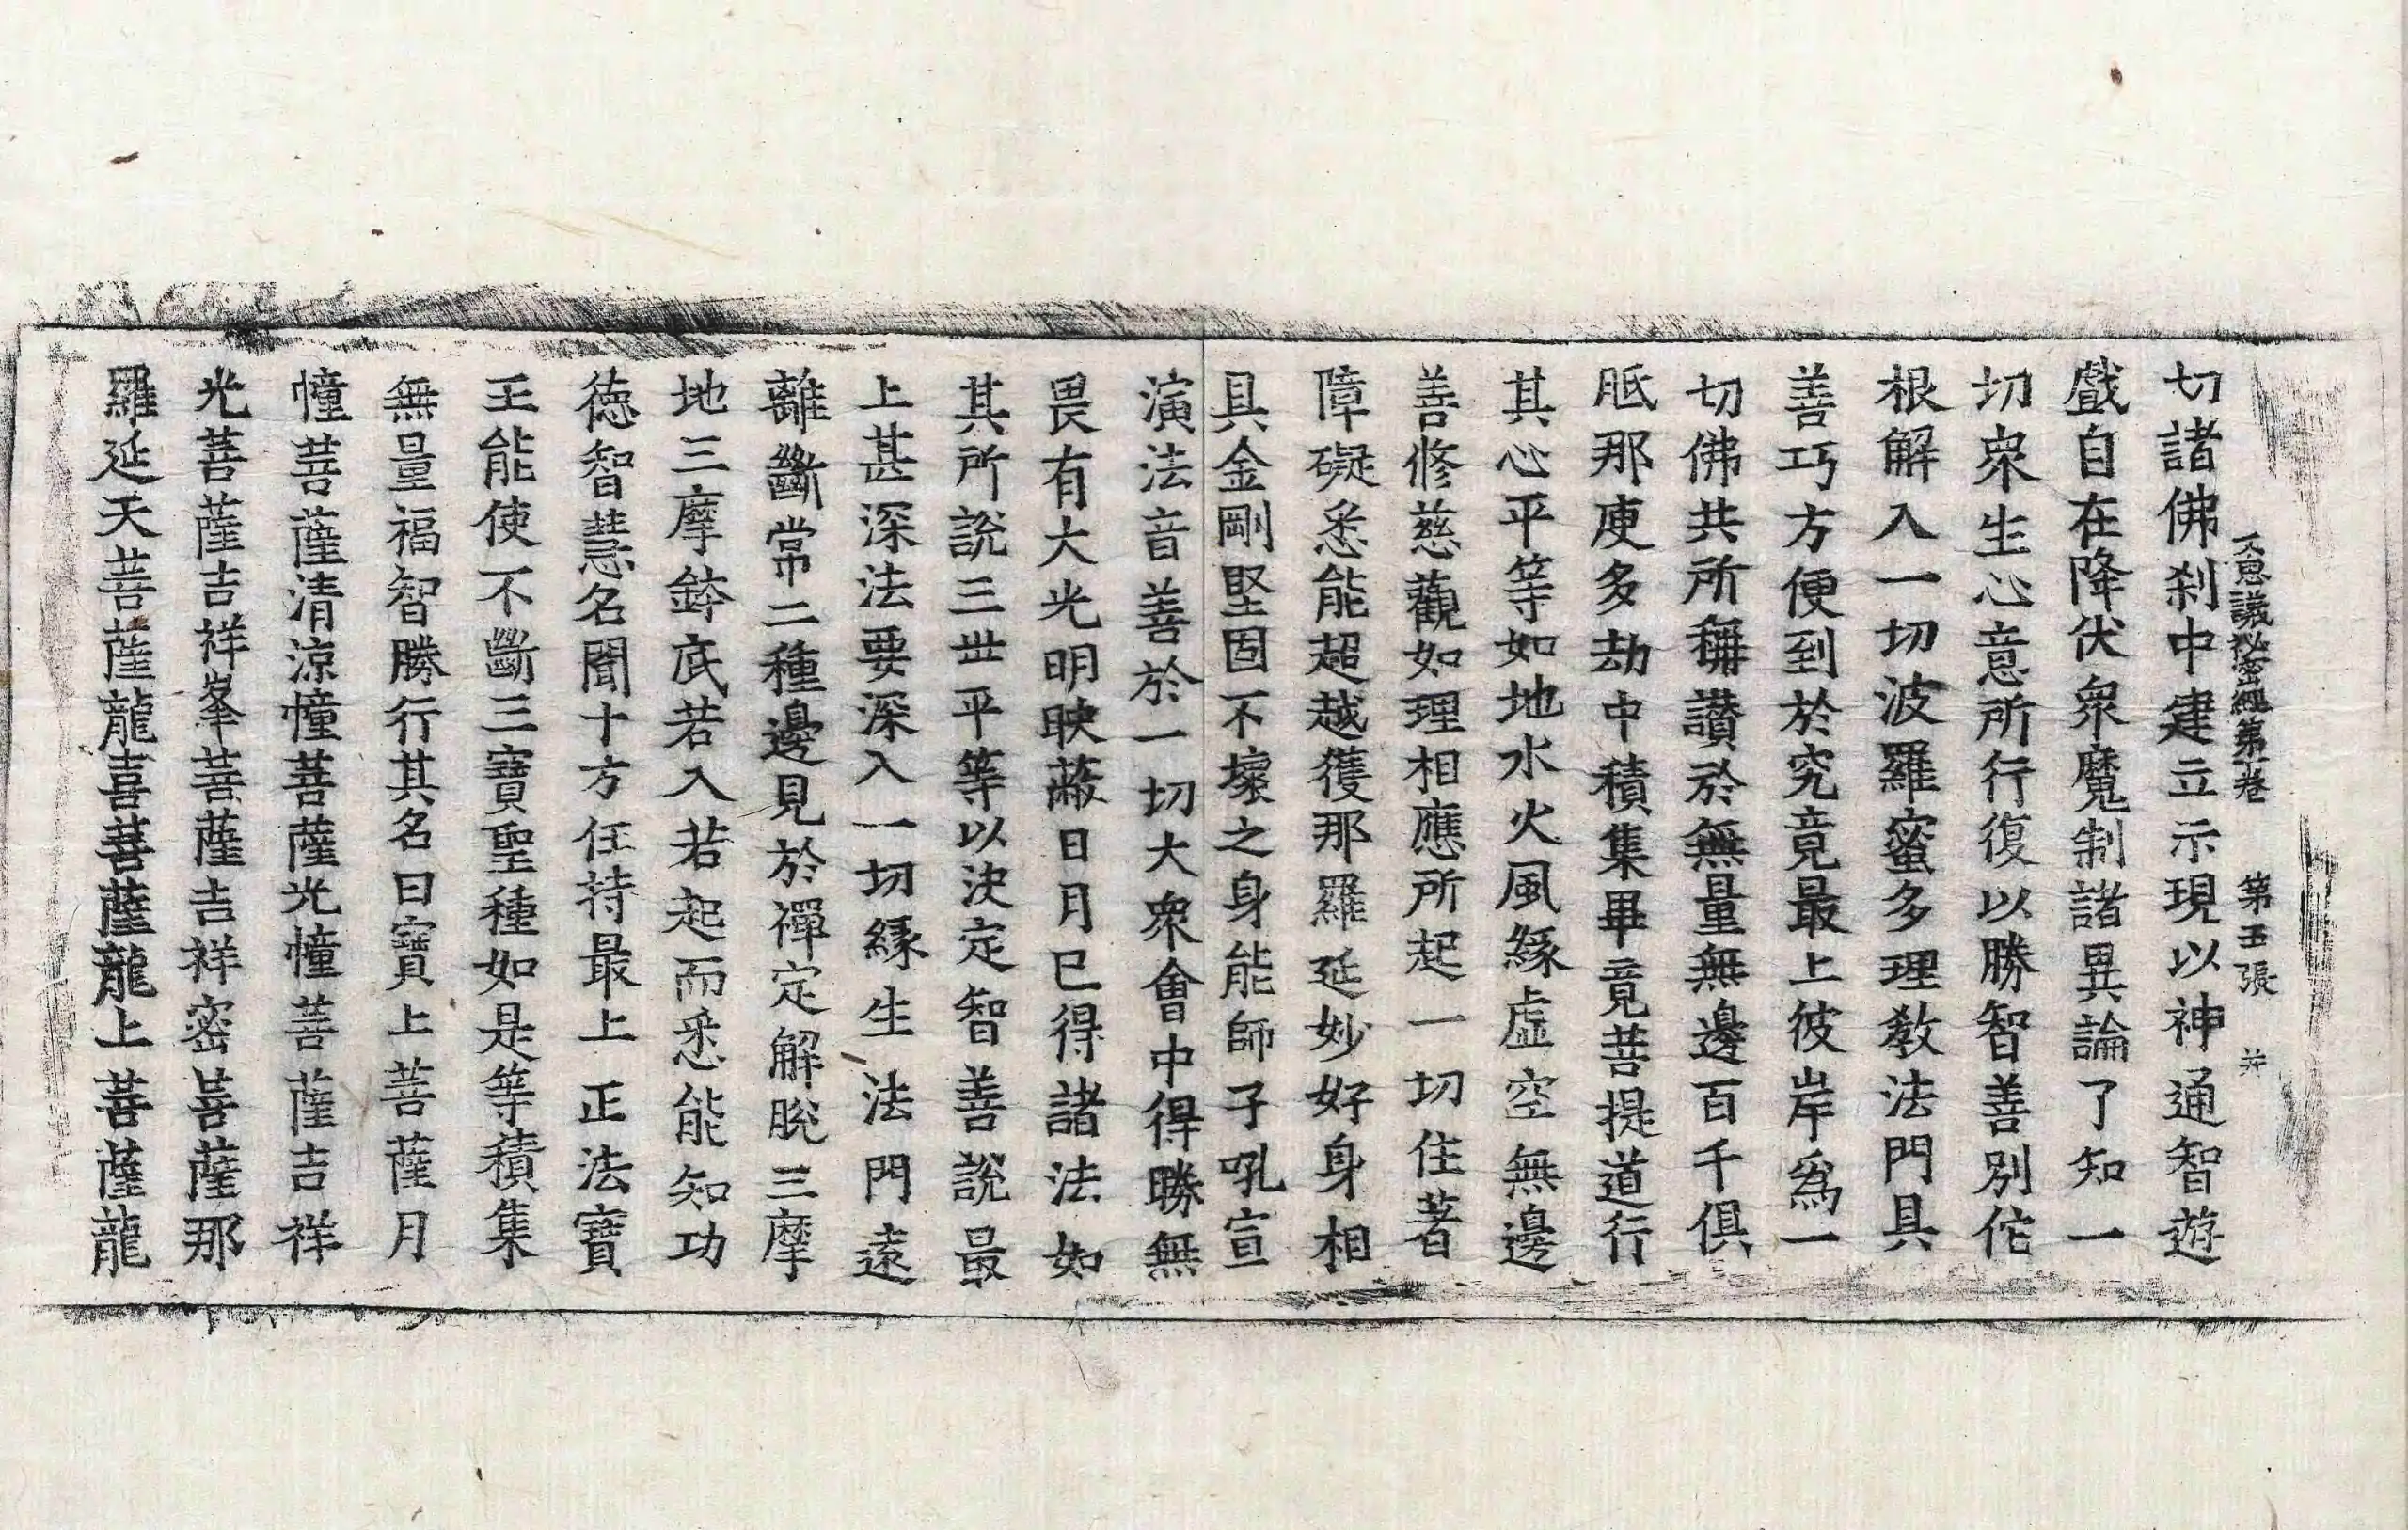 不思議秘密經第一卷 第五張 㳟
切諸佛刹中建立示現以神通智遊
戲自在降伏衆魔制諸異論了知一
切衆生心意所行復以勝智善別佗
根解入一切波羅蜜多理教法門具
善巧方便到於究竟最上彼岸爲一
切佛共所稱讃於無量無邊百千俱
胝那庾多劫中積集畢竟菩提道行
其心平等如地水火風緣虛空無邊
善修慈觀如理相應所起一切住著
障礙悉能超越獲那羅延妙好身相
具金剛堅固不壞之身能師子吼宣
演法音善於一切大衆會中得勝無
畏有大光明映蔽日月已得諸法如
其所說三世平等以決定智善說最
上甚深法要深入一切緣生法門遠
離斷常二種邊見於禪定解脫三摩
地三摩鉢底若入若起而悉能知功
德智慧名聞十方任持最上正法寶
王能使不斷三寶聖種如是等積集
無量福智勝行其名曰寶上菩薩月
幢菩薩清涼幢菩薩光幢菩薩吉祥
光菩薩吉祥峯菩薩吉祥密菩薩那
羅延天菩薩龍喜菩薩龍上菩薩龍